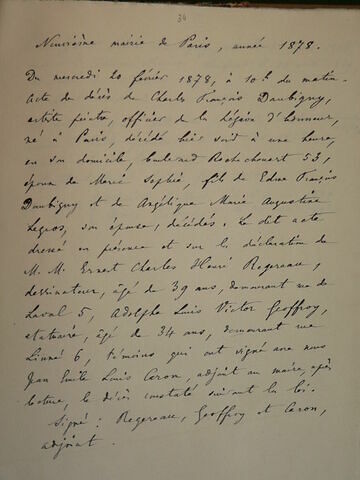 34
Neuvième mairie de Paris, année 1878.
Du mercredi 20 février 1878, à 10h. du matin.
Acte de décès de Charles François Daubigny,
artiste peintre, officier de la Légion d'honneur,
né à Paris, décédé hier soir à une heure,
en son domicile, boulevard Rochechouart 53,
époux de Marie Sophie, fils de Edme François
Daubigny et de Angélique Marie Augustine
Legros, son épouse, décédés. Le dit acte
dressé en présence et sur la déclaration de
M. M. Ernest Charles Henri Regereau,
dessinateur, âgé de 39 ans, demeurant rue
Laval 5, Adolphe Louis Victor Geoffroy,
statuaire, âgé de 34 ans, demeurant rue
Linné 6, témoins qui ont signé avec nous
Jean Emile Louis Caron, adjoint au maire, après
lecture, le décès constaté suivant la loi.
Signé : Regereau, Geoffroy et Caron,
adjoint.